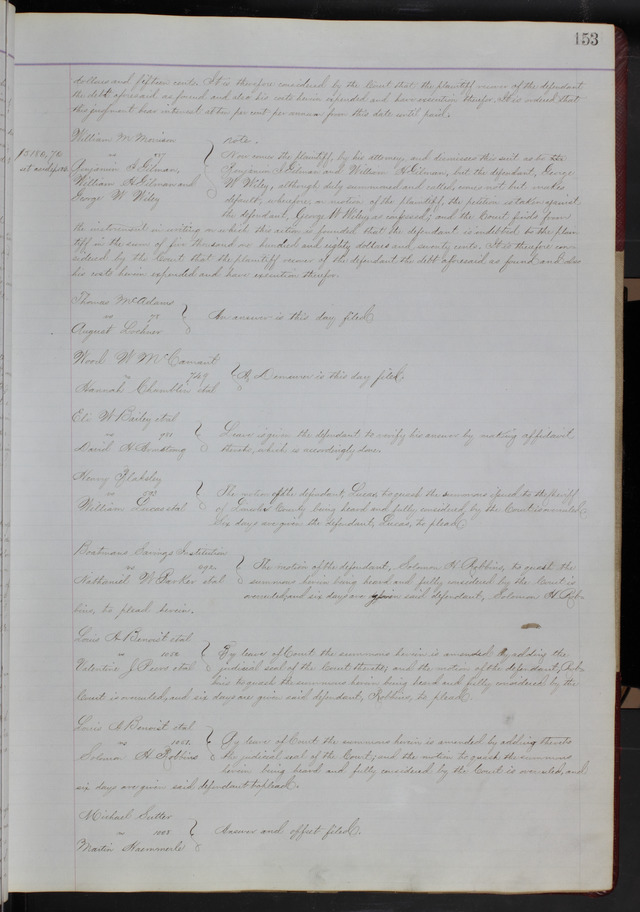 153
dollars and fifteen cents. It is therefore considered by the Court that the plaintiff recover of the defendant
the debt aforesaid as found and also his costs herein expended and have execution therefor. It is ordered that
this judgment bear interest at ten per cent per annum from this date until paid.
William M. Morrison
vs
Benjamin F. Gilman,
William H. Gilman and
George W. Wiley
note.
Now comes the plaintiff, by his attorney, and dismisses this suit as to the
Benjamin F. Gilman and William H. Gilman, but the defendant, George
W. Wiley, although duly summoned and called, comes not but makes
default; wherefore, on motion of the plaintiff, the petition is taken against
the defendant, George W. Wiley as confessed; and the Court finds from
the instrument in writing on which this action is founded that the defendant is indebted to the plain
tiff in the sum of five thousand one hundred and eighty dollars and seventy cents. It is therefore con
sidered by the Court that the plaintiff recover of the defendant the debt aforesaid as found and also
his costs herein expended and have execution therefor.
Thomas McAdams
vs
August Lochner
An answer is this day filed.
Wood W McCamant
vs 749
Hannah Chamblin etal
A Demurrer is this day filed.
Eli W. Bailey etal
vs
David H Armstrong
Leave is given the defendant to verify his answer by making affidavit
thereto, which is accordingly done.
Henry Blaksley
vs
William Lucas etal
The motion of the defendant, Lucas, to quash the summons issued to the Sheriff
of County being heard and fully considered by the Court is overruled
Six days are given the defendant, Lucas, to plead.
Boatmans Savings Institution
vs
Nathaniel W. Parker etal
The motion of the defendant, Solomon H. Robbins, to quash the
summons herein being heard and fully considered by the Court is
overruled, and six days are given said defendant, Solomon H Rob-
bins, to plead herein.
Louis A Benoist etal
vs 1050
Valentine J. Peers etal
By leave of Court the summons herein is amended by adding the
judicial seal of the Court thereto; and the motion of the defendant, Rob
bins to quash the summons herein being heard and fully considered by the
Court is overruled, and six days are given said defendant, Robbins, to plead.
Louis A Benoist etal
vs 1051
Solomon H. Robbins
By leave of Court the summons herein is amended by adding thereto
the judicial seal of the Court; and the motion to quash the summons
herein being heard and fully considered by the Court is overruled, and
six days are given said defendant to plead.
Michael Sutter
vs
Martin Haemmerle
Answer and offset filed.